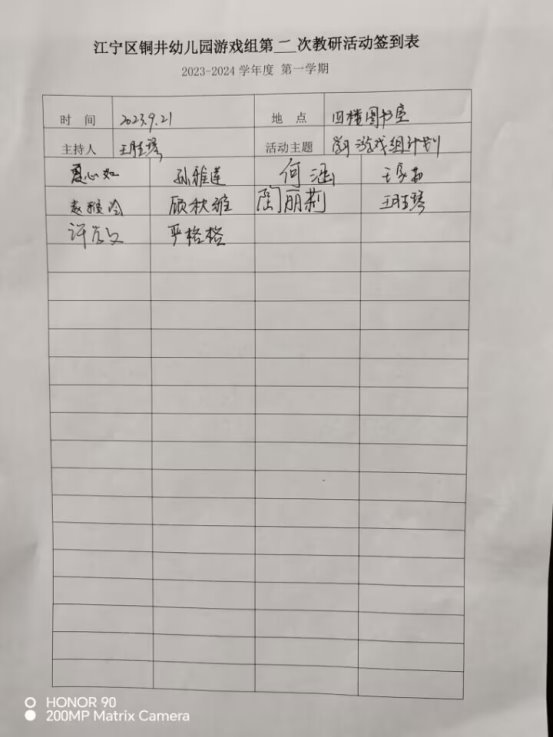 江宁区铜井幼儿园游戏组第二次教研活动签到表
2023-2024 学年度 第一学期
时 间 2023.9.21 地 点 四楼图书室
主持人 活动主题 游戏组计划
孙雅莲 何涵
顾秋雅 陶丽莉
严格格
HONOR 90
200MP Matrix Camera